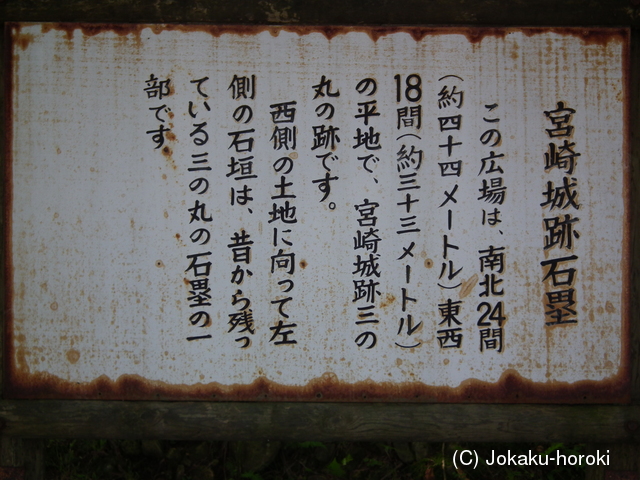 宮崎城跡石塁
この広場は、南北24間
（約四十四メートル）東西
18間（約三十三メートル）
の平地で、宮崎城跡三の
丸の跡です。
西側の土地に向って左
側の石垣は、昔から残っ
ている三の丸の石塁の一
部です
(C) Jokaku-horoki